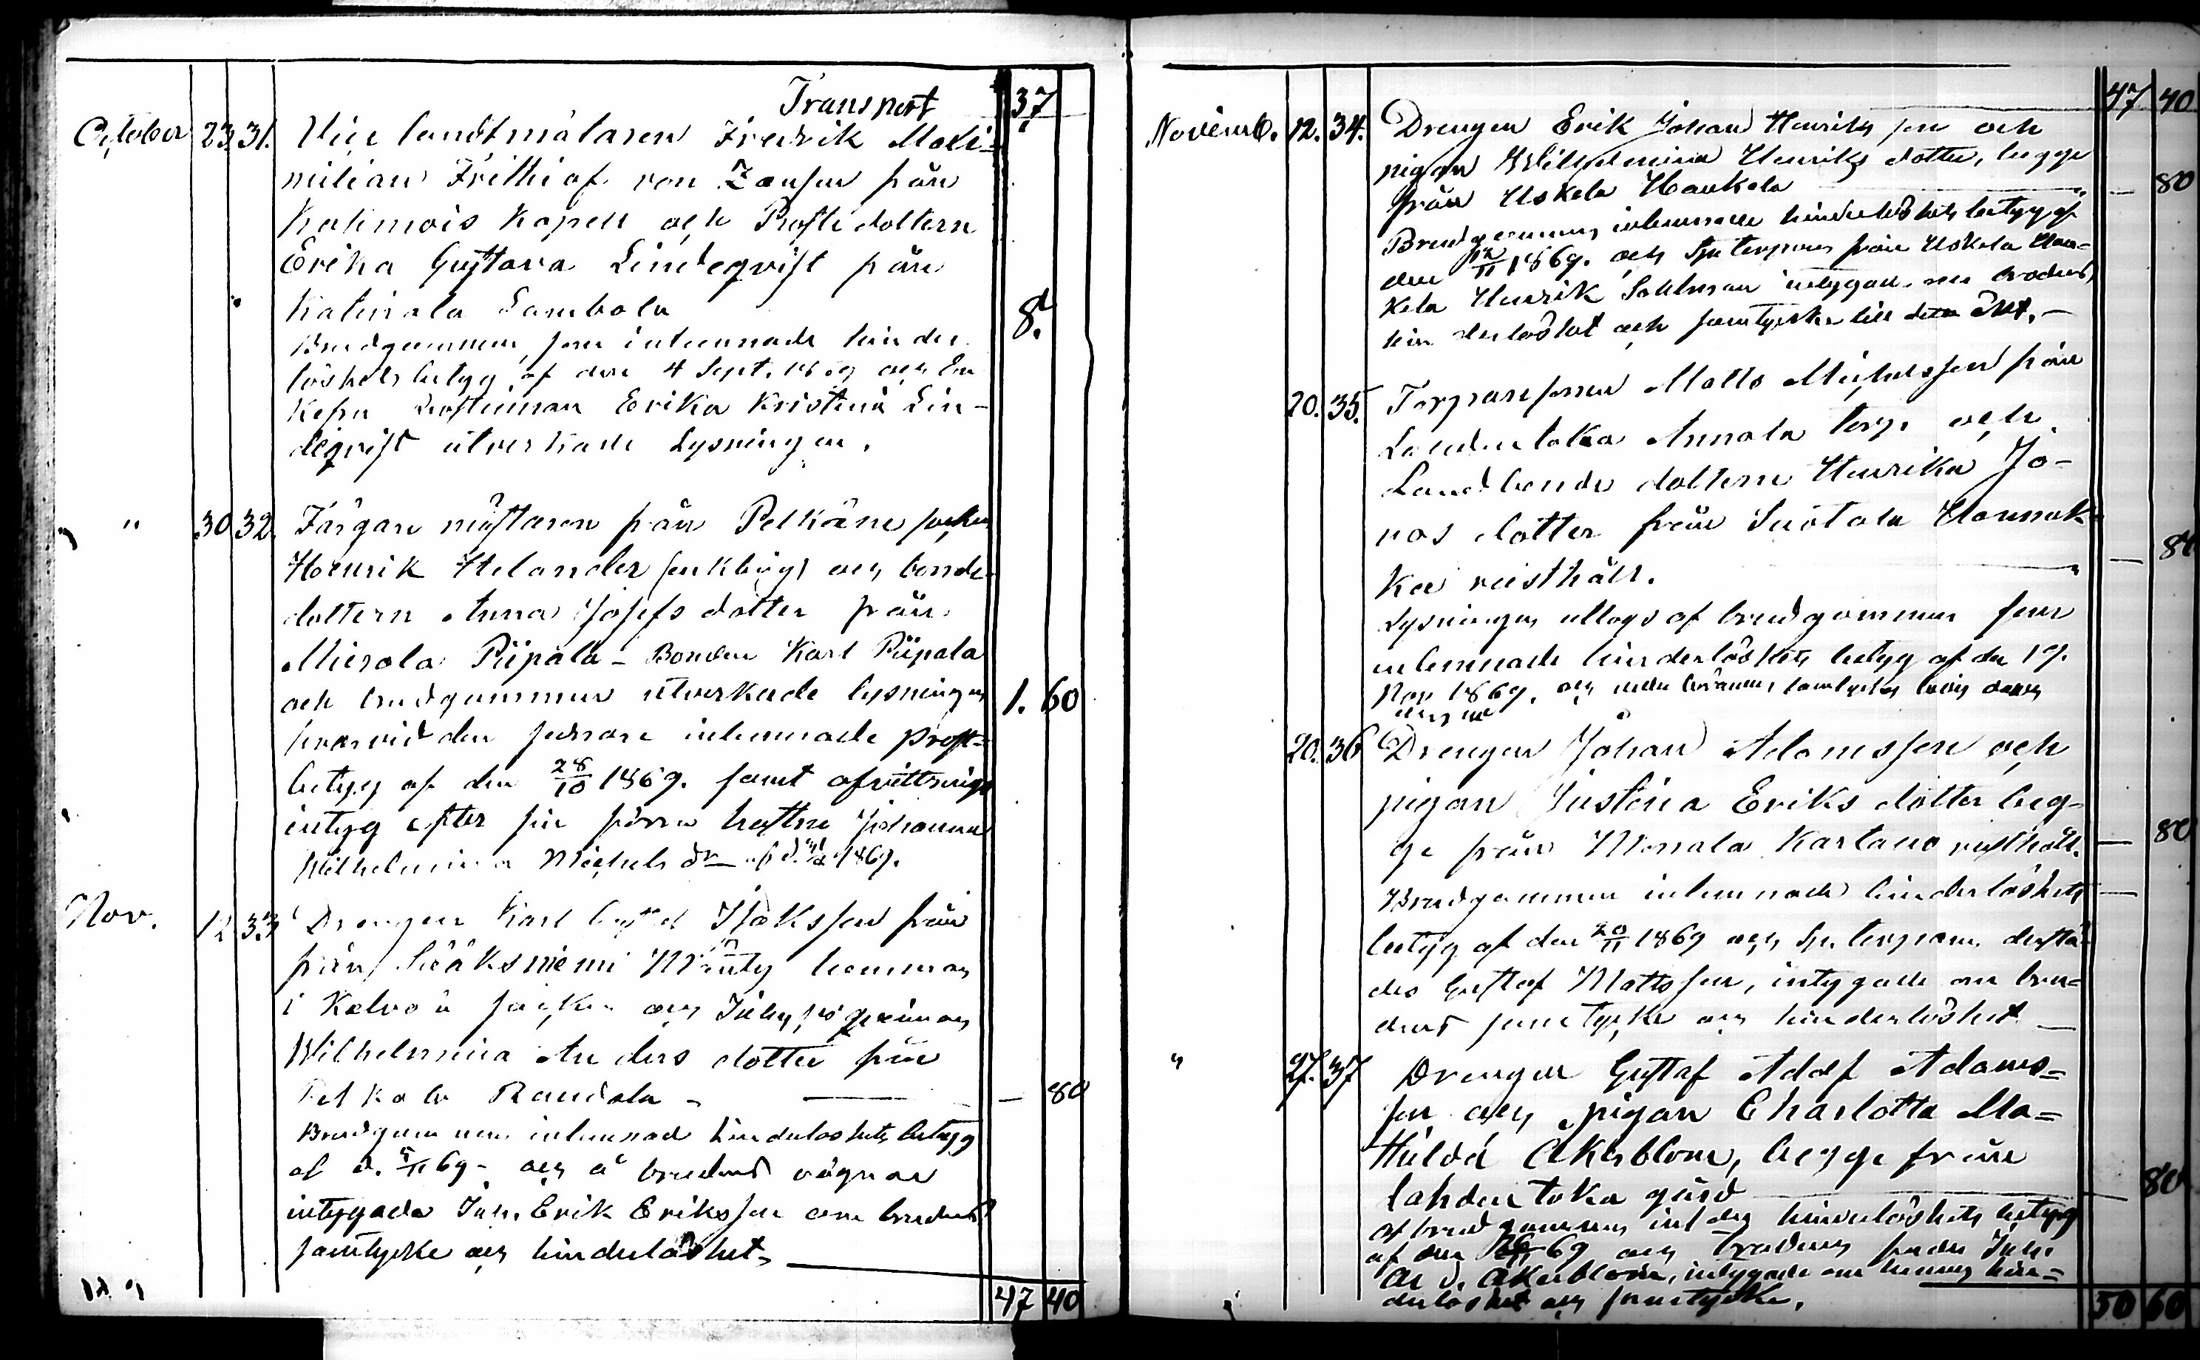 Transport 37
October 23. 31. Vice landtmätaren Fredrik Maxi-
milian Frithiof von Zansen från
Kapell och Prosti dottern
Erika Gustava Lindeqvist från
Kalinala Sambola 8.
Brudgummen, som inlemnade hinder
löshets betyg af den 4 Sept. och En
kefru Erika Kristina Lin-
deqvist utverkade Lysningen.
" 30 32. Färgare mästaren från Pelkäne socken
Henrik Helander och bonde
dottern Anna Josefs dotter från
Mierola Piipala - Bonden Karl Piipala
och brudgummen utverkade lysningen 1. 60
hvarvid den sednare inlemnade prest-
betyg af den 28/10 1869. samt afvittrings
intyg efter sin förra hustru Johanna
Wilhelmina Michels dr 1869.
Nov. 12 33 Drengen Karl Isaksson från
från Sääksmemi hemman
i Kalvola socken och
Wilhelmina Anders dotter från
Retkala Raudala - — 80
Brudgummen inlemnad hinderlöshets betyg
af d. 69 - och å brudens vägnar
intygade Inh. Erik Eriksson om brudens
samtycke och hinderlöshet.
47 40
47 40
Novemb. 12. 34. Drengen Erik Johan Henriks son och
pigan Wilhelmina Henriks dotter, begge
från Uskela Haukela — 80
Brudgummen inlemnade hinderlöshets betyg af
den 12/11 1869. och Sp. torparen från Uskela Hau-
kela Henrik Sahlman intygade om brudens
hinderlöshet och samtycke till detta äkt. -
20. 35. Torparesonen Matts Michelsson från
Laudentaka Annala torp och
Landbonde dottern Henrika Jo-
nas dotter från Suotala Hannuk-
kee rusthåll. — 80
Lysningen uttogs af brudgummen som
inlemnade hinderlöshets betyg af den 19.
Nov 1869. och
20. 36 Drengen Johan Adamsson och
pigan Justina Eriks dotter beg-
ge från Monala Kartano rusthåll. — 80
Brudgummen inlemnade hinderlöshets
betyg af den 20/11 1869 och Sp. torparen derstä-
des Gustaf Mattsson, intygade om bru-
dens samtycke och hinderlöshet -
" 27. 37 Drengen Gustaf Adolf Adams-
son och pigan Charlotta Ma-
thilda Åkerblom, begge från
lahden taka gård — 80
af brudgummen hinderlöshets betyg
af den 69 och brudens fader Inh.
Åkerblom, intygade om hennes hin-
derlöshet och samtycke.
50 60